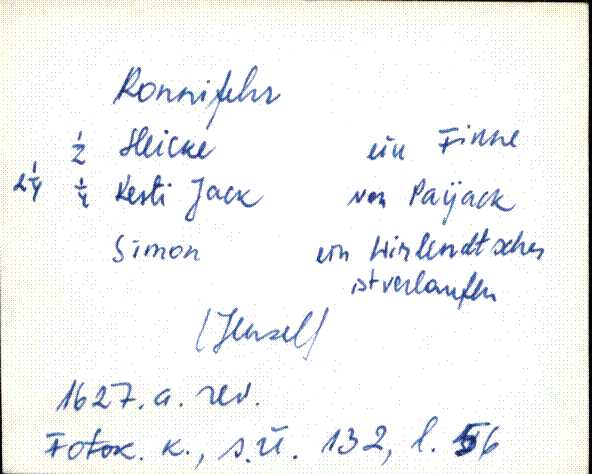 Ronnifehr
1/2 Heicke ein Finne
2 1/4 1/4 Kesti Jack von Paÿack
Simon ein Wirlendtscher
ist verlaufen
(Jensel)
1627. a. rev.
Fotok. k., s.ü. 132, l. 56